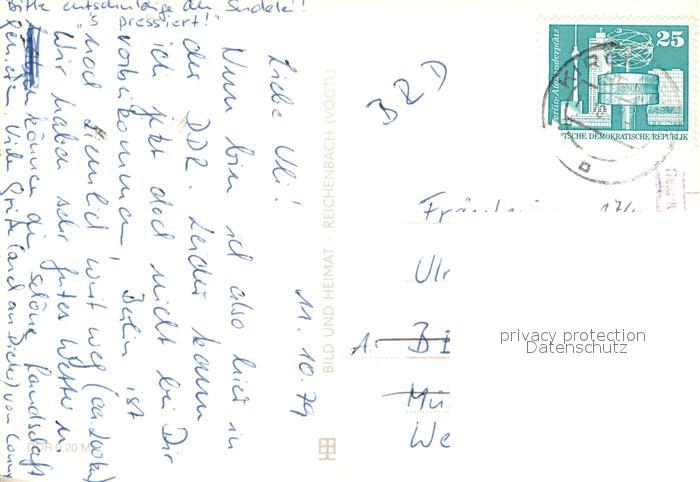 Bitte entschuldige den Sudelei!!
"s pressiert!"
11. 10. 79
Liebe Uli!
Nun bin ich also hier in
der DDR. Leider kann
ich jetzt doch nicht bei Dir
vorbeikommen! Berlin ist
noch ziemlich weit weg (ca. 200 km)
Wir haben sehr gutes Wetter u.
können die schöne Landschaft
genießen. Viele Grüße (auch an Dicke) von Conny
DDR 0.20 M
BILD UND HEIMAT · REICHENBACH (VOGTL)
BRD
25
Berlin-Alexanderplatz
DEUTSCHE DEMOKRATISCHE REPUBLIK
KIRC
Fräulein
Ulr
A: BE
Mü
We
privacy protection
Datenschutz